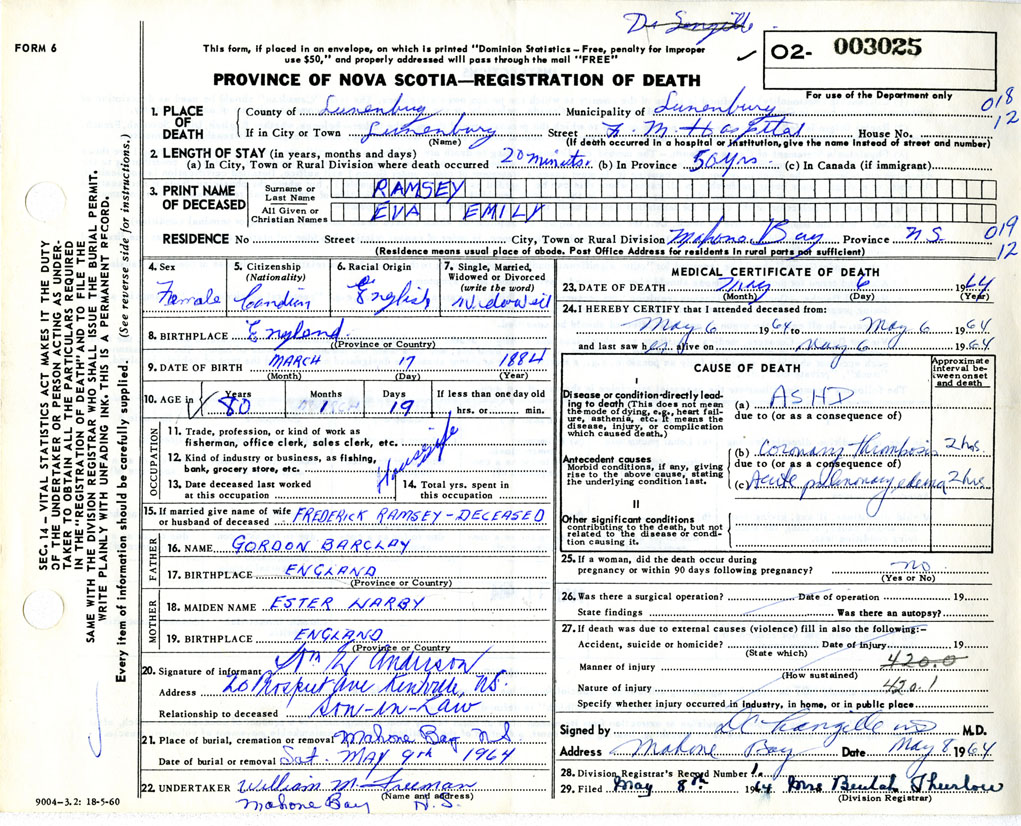 FORM 6
This form, if placed in an envelope, on which is printed "Dominion Statistics – Free, penalty for improper
use $50," and properly addressed will pass through the mail "FREE"
PROVINCE OF NOVA SCOTIA—REGISTRATION OF DEATH
O2- 003025
For use of the Department only
018
12
1. PLACE OF DEATH
County of Lunenburg Municipality of Lunenburg
If in City or Town Lunenburg Street F. M. Hospital House No.
(Name) (If death occurred in a hospital or institution, give the name instead of street and number)
2. LENGTH OF STAY (in years, months and days)
(a) In City, Town or Rural Division where death occurred 20 minutes. (b) In Province 50 yrs (c) In Canada (if immigrant)
3. PRINT NAME OF DECEASED
Surname or Last Name RAMSEY
All Given or Christian Names EVA EMILY
RESIDENCE No Street City, Town or Rural Division Mahone Bay Province N S
019
12
(Residence means usual place of abode. Post Office Address for residents in rural parts not sufficient)
4. Sex
Female
5. Citizenship
(Nationality)
Candian
6. Racial Origin
English
7. Single, Married, Widowed or Divorced
(write the word)
8. BIRTHPLACE England
(Province or Country)
9. DATE OF BIRTH MARCH 17 1884
(Month) (Day) (Year)
10. AGE in Years 80 Months 1 Days 19 If less than one day old
hrs. or min.
OCCUPATION
11. Trade, profession, or kind of work as
fisherman, office clerk, sales clerk, etc.
Housewife
12. Kind of industry or business, as fishing,
bank, grocery store, etc.
13. Date deceased last worked
at this occupation
14. Total yrs. spent in
this occupation
15. If married give name of wife
or husband of deceased FREDERICK RAMSEY - DECEASED
FATHER
16. NAME GORDON BARCLAY
17. BIRTHPLACE ENGLAND
(Province or Country)
MOTHER
18. MAIDEN NAME ESTER WARBY
19. BIRTHPLACE ENGLAND
(Province or Country)
20. Signature of informant Anderson
Address 20 Prospect Ave Kentville, N.S.
Relationship to deceased Son-in-Law
21. Place of burial, cremation or removal Mahone Bay N S
Date of burial or removal Sat. May 9th 1964
22. UNDERTAKER William M. Freeman
(Name and address)
Mahone Bay N.S.
9004-3.2: 18-5-60
MEDICAL CERTIFICATE OF DEATH
23. DATE OF DEATH May 6 1964
(Month) (Day) (Year)
24. I HEREBY CERTIFY that I attended deceased from:
May 6 1964 to May 6 1964
and last saw her alive on May 6 1964
CAUSE OF DEATH
Approximate interval between onset and death
I
Disease or condition directly leading to death (This does not mean
the mode of dying, e.g., heart failure, asthenia, etc. It means the
disease, injury, or complication
which caused death.)
(a) ASHD
due to (or as a consequence of)
Antecedent causes
Morbid conditions, if any, giving
rise to the above cause, stating
the underlying condition last.
(b) Coronary Thrombosis 2 hrs
due to (or as a consequence of)
(c) Acute pulmonary edema 2 hrs
II
Other significant conditions
contributing to the death, but not
related to the disease or condition causing it.
25. If a woman, did the death occur during
pregnancy or within 90 days following pregnancy? no
(Yes or No)
26. Was there a surgical operation? Date of operation 19
State findings Was there an autopsy?
27. If death was due to external causes (violence) fill in also the following:–
Accident, suicide or homicide? Date of injury 19
(State which)
Manner of injury 420.0
(How sustained)
Nature of injury 420.1
Specify whether injury occurred in industry, in home, or in public place
Signed by M.D.
Address Mahone Bay Date May 8 1964
28. Division Registrar's Record Number
29. Filed May 8th 1964 Mrs Beulah Thurlow
(Division Registrar)
SEC. 14 – VITAL STATISTICS ACT MAKES IT THE DUTY
OF THE UNDERTAKER OR PERSON ACTING AS UNDERTAKER TO OBTAIN ALL THE PARTICULARS REQUIRED
IN THE "REGISTRATION OF DEATH" AND TO FILE THE
SAME WITH THE DIVISION REGISTRAR WHO SHALL ISSUE THE BURIAL PERMIT.
WRITE PLAINLY WITH UNFADING INK. THIS IS A PERMANENT RECORD.
Every item of information should be carefully supplied. (See reverse side for instructions.)